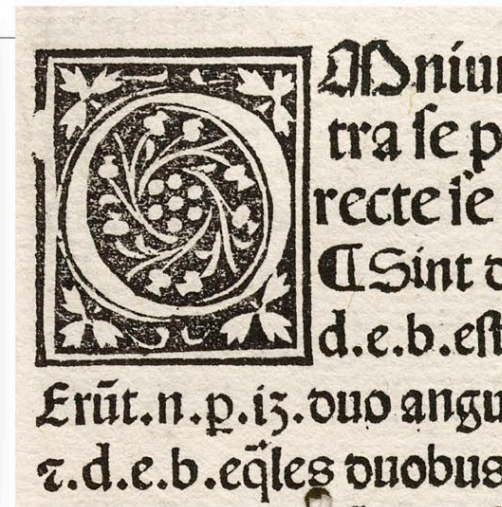 OMniu
tra ſe p
recte ſe
¶Sint d
d.e.b.eſt
Erũt.n.p̱.iʒ.duo angu
⁊.d.e.b.eq̃les duobus